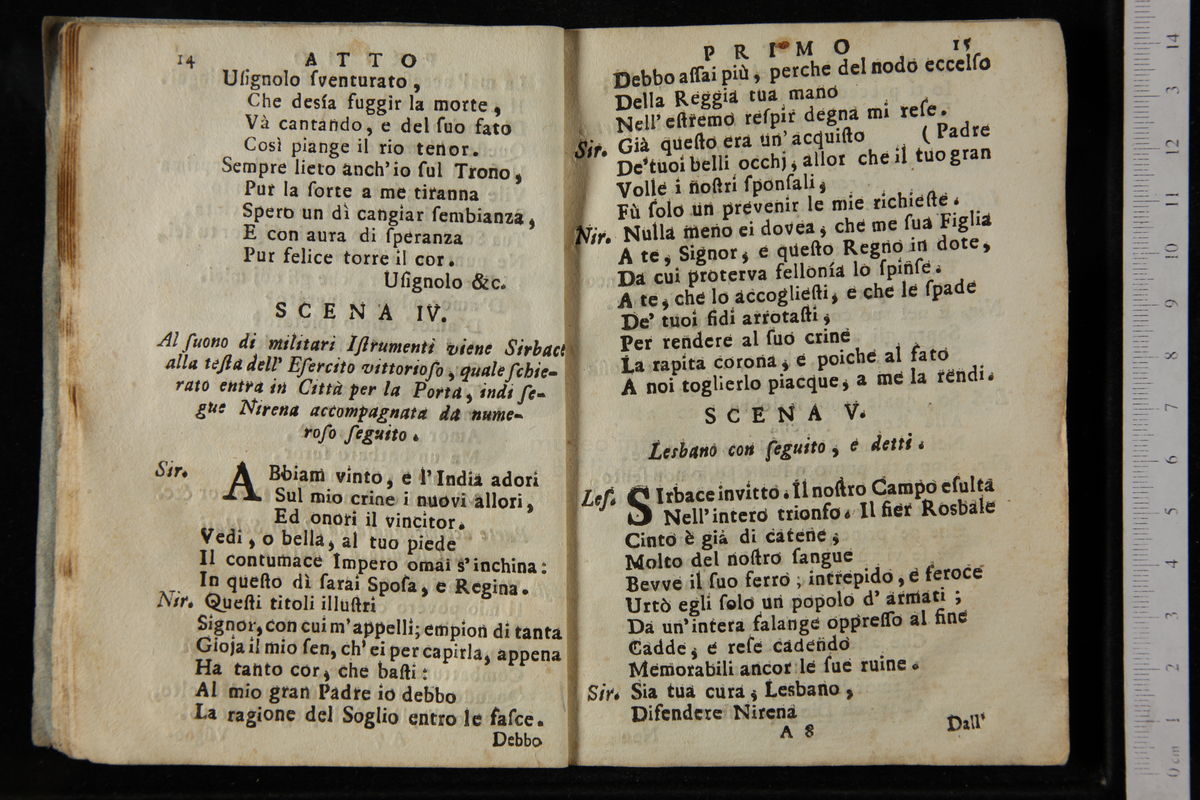 14 ATTO
Uſignolo ſventurato,
Che desía fuggir la morte,
Và cantando, e del ſuo fato
Così piange il rio tenor.
Sempre lieto anch'io ſul Trono,
Pur la ſorte a me tiranna
Spero un dì cangiar ſembianza,
E con aura di ſperanza
Pur felice torre il cor.
Uſignolo &c.
SCENA IV.
Al ſuono di militari Iſtrumenti viene Sirbace
alla teſta dell' Eſercito vittorioſo, quale ſchie-
rato entra in Città per la Porta, indi ſe-
gue Nirena accompagnata da nume-
roſo ſeguito.
Sir. ABbiam vinto, e l'India adori
Sul mio crine i nuovi allori,
Ed onori il vincitor.
Vedi, o bella, al tuo piede
Il contumace Impero omai s'inchina:
In queſto dì ſarai Spoſa, e Regina.
Nir. Queſti titoli illuſtri
Signor, con cui m'appelli; empion di tanta
Gioja il mio ſen, ch' ei per capirla, appena
Ha tanto cor, che baſti:
Al mio gran Padre io debbo
La ragione del Soglio entro le faſce.
Debbo
PRIMO 15
Debbo aſſai più, perche del nodo eccelſo
Della Reggia tua mano
Nell' eſtremo reſpir degna mi reſe.
Sir. Già queſto era un' acquiſto (Padre
De'tuoi belli occhj, allor che il tuo gran
Volle i noſtri ſponſali,
Fù ſolo un prevenir le mie richieſte.
Nir. Nulla meno ei dovea, che me ſua Figlia
A te, Signor, e queſto Regno in dote,
Da cui proterva fellonía lo ſpinſe.
A te, che lo accoglieſti, e che le ſpade
De' tuoi fidi arrotaſti,
Per rendere al ſuo crine
La rapita corona, e poichè al fato
A noi toglierlo piacque, a me la rendi.
SCENA V.
Lesbano con ſeguito, e detti.
Leſ. SIrbace invitto. Il noſtro Campo eſulta
Nell'intero trionfo. Il fier Rosbale
Cinto è già di catene,
Molto del noſtro ſangue
Bevve il ſuo ferro; intrepido, e feroce
Urtò egli ſolo un popolo d' armati;
Da un'intera falange oppreſſo al fine
Cadde, e reſe cadendo
Memorabili ancor le ſue ruine.
Sir. Sia tua cura, Lesbano,
Difendere Nirena
A 8 Dall'
0 cm 1 2 3 4 5 6 7 8 9 10 11 12 3 14